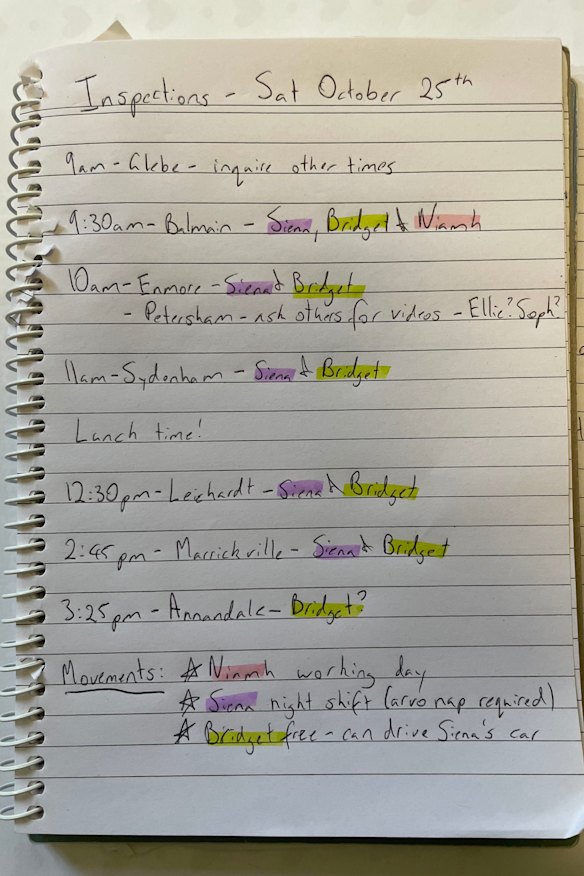 Inspections - Sat October 25th
9am - Glebe - inquire other times
9:30am - Balmain - Siena, Bridget & Niamh
10am - Enmore - Siena & Bridget
- Petersham - ask others for videos - Ellie? Soph?
11am - Sydenham - Siena & Bridget
Lunch time!
12:30pm - Leichardt - Siena & Bridget
2:45pm - Marrickville - Siena & Bridget
3:25pm - Annandale - Bridget?
Movements: ☆ Niamh working day
☆ Siena night shift (arvo nap required)
☆ Bridget free - can drive Siena's car